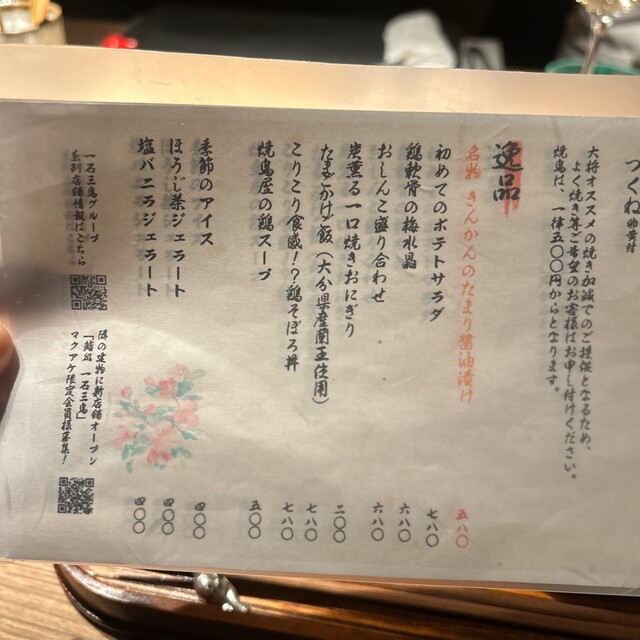 つくね 卵黄付
大将オススメの焼き加減でのご提供となるため、
よく焼き等ご希望のお客様はお申し付けください。
焼鳥は、一律五〇〇円からとなります。
逸品
名物 きんかんのたまり醤油漬け 五八〇
初めてのポテトサラダ 七八〇
鶏軟骨の梅水晶 六八〇
おしんこ盛り合わせ 六八〇
炭薫る一口焼きおにぎり 二〇〇
たまごかけご飯(大分県産蘭王使用) 七八〇
こりこり食感!?鶏そぼろ丼 七八〇
焼鳥屋の鶏スープ 五〇〇
季節のアイス 四〇〇
ほうじ茶ジェラート 四〇〇
塩バニラジェラート 四〇〇
一石三鳥グループ
系列店舗情報はこちら
隣の建物に新店舗オープン
一石三鳥」
マクアケ限定会員様募集!